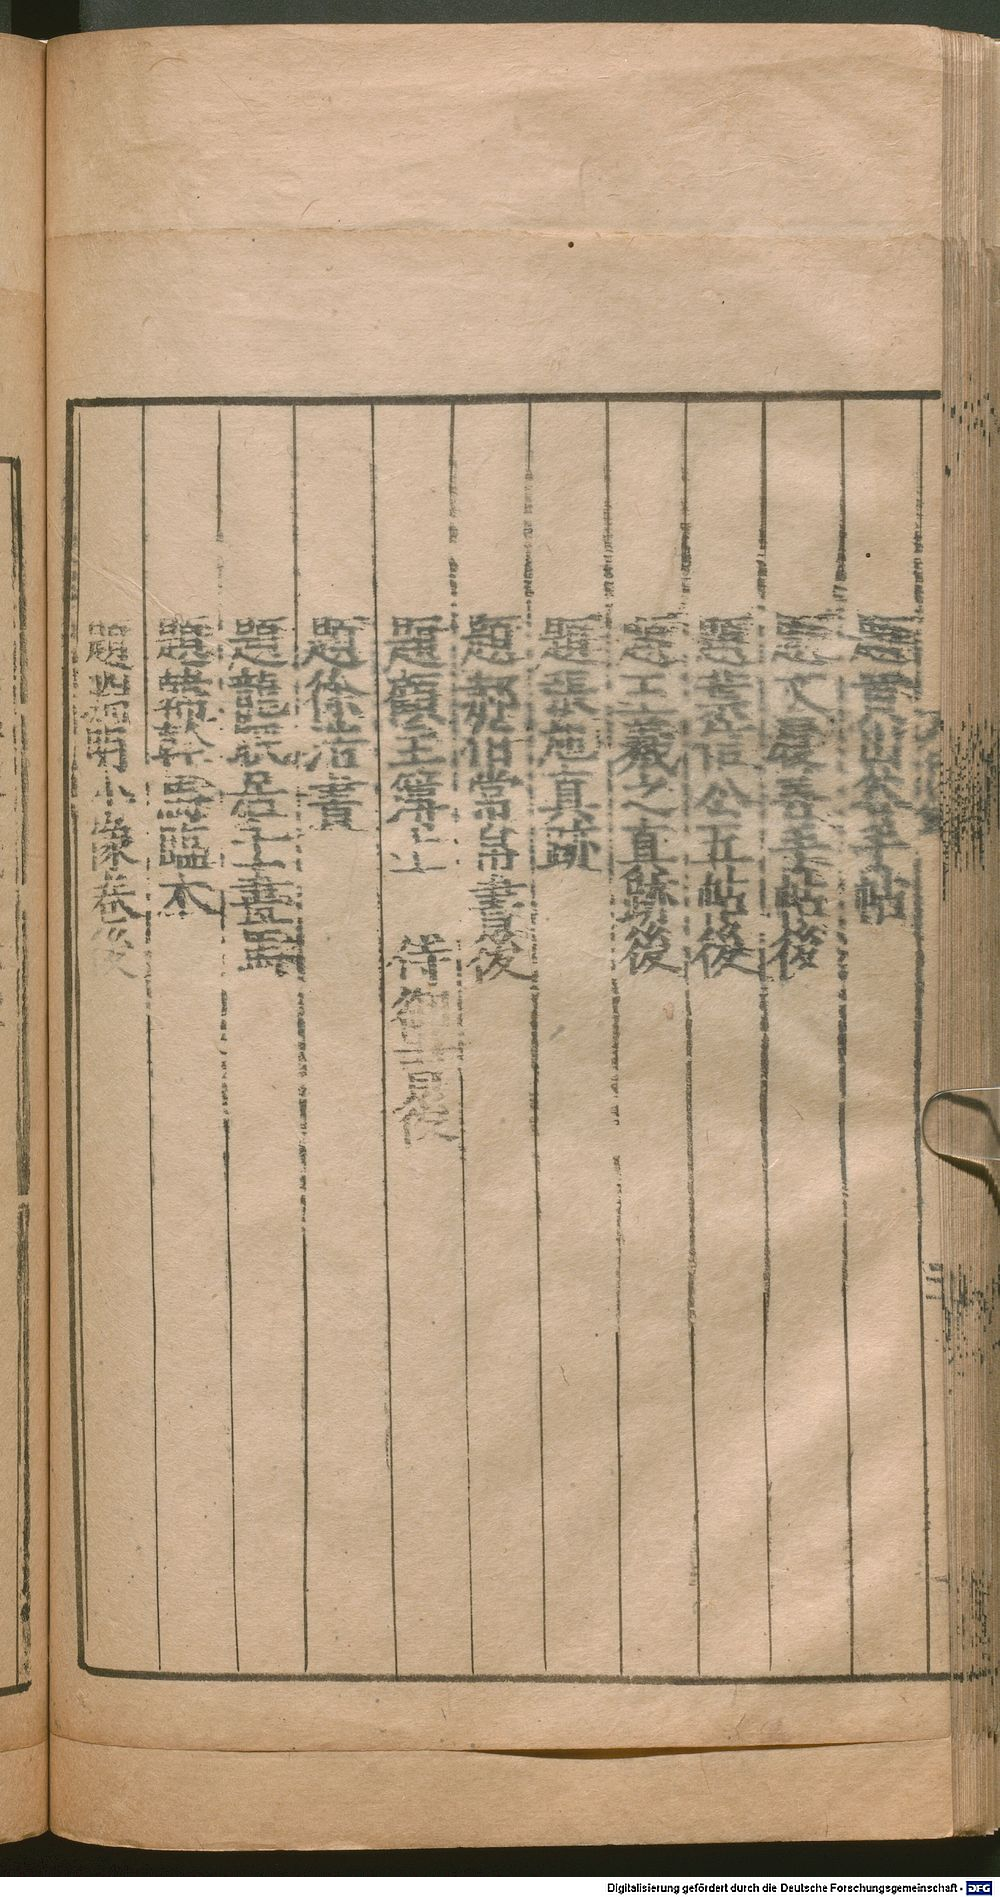 題晉仙翁手帖
題文履善手帖後
題葉信公五帖後
題王藏之真跡後
題張 真蹟
題郝伯常帛書後
題顧主簿上 侍御書後
題徐浩書
題龍眠居士畫馬
題韓幹馬臨本
題四明 小像卷後
三
Digitalisierung gefördert durch die Deutsche Forschungsgemeinschaft - DFG